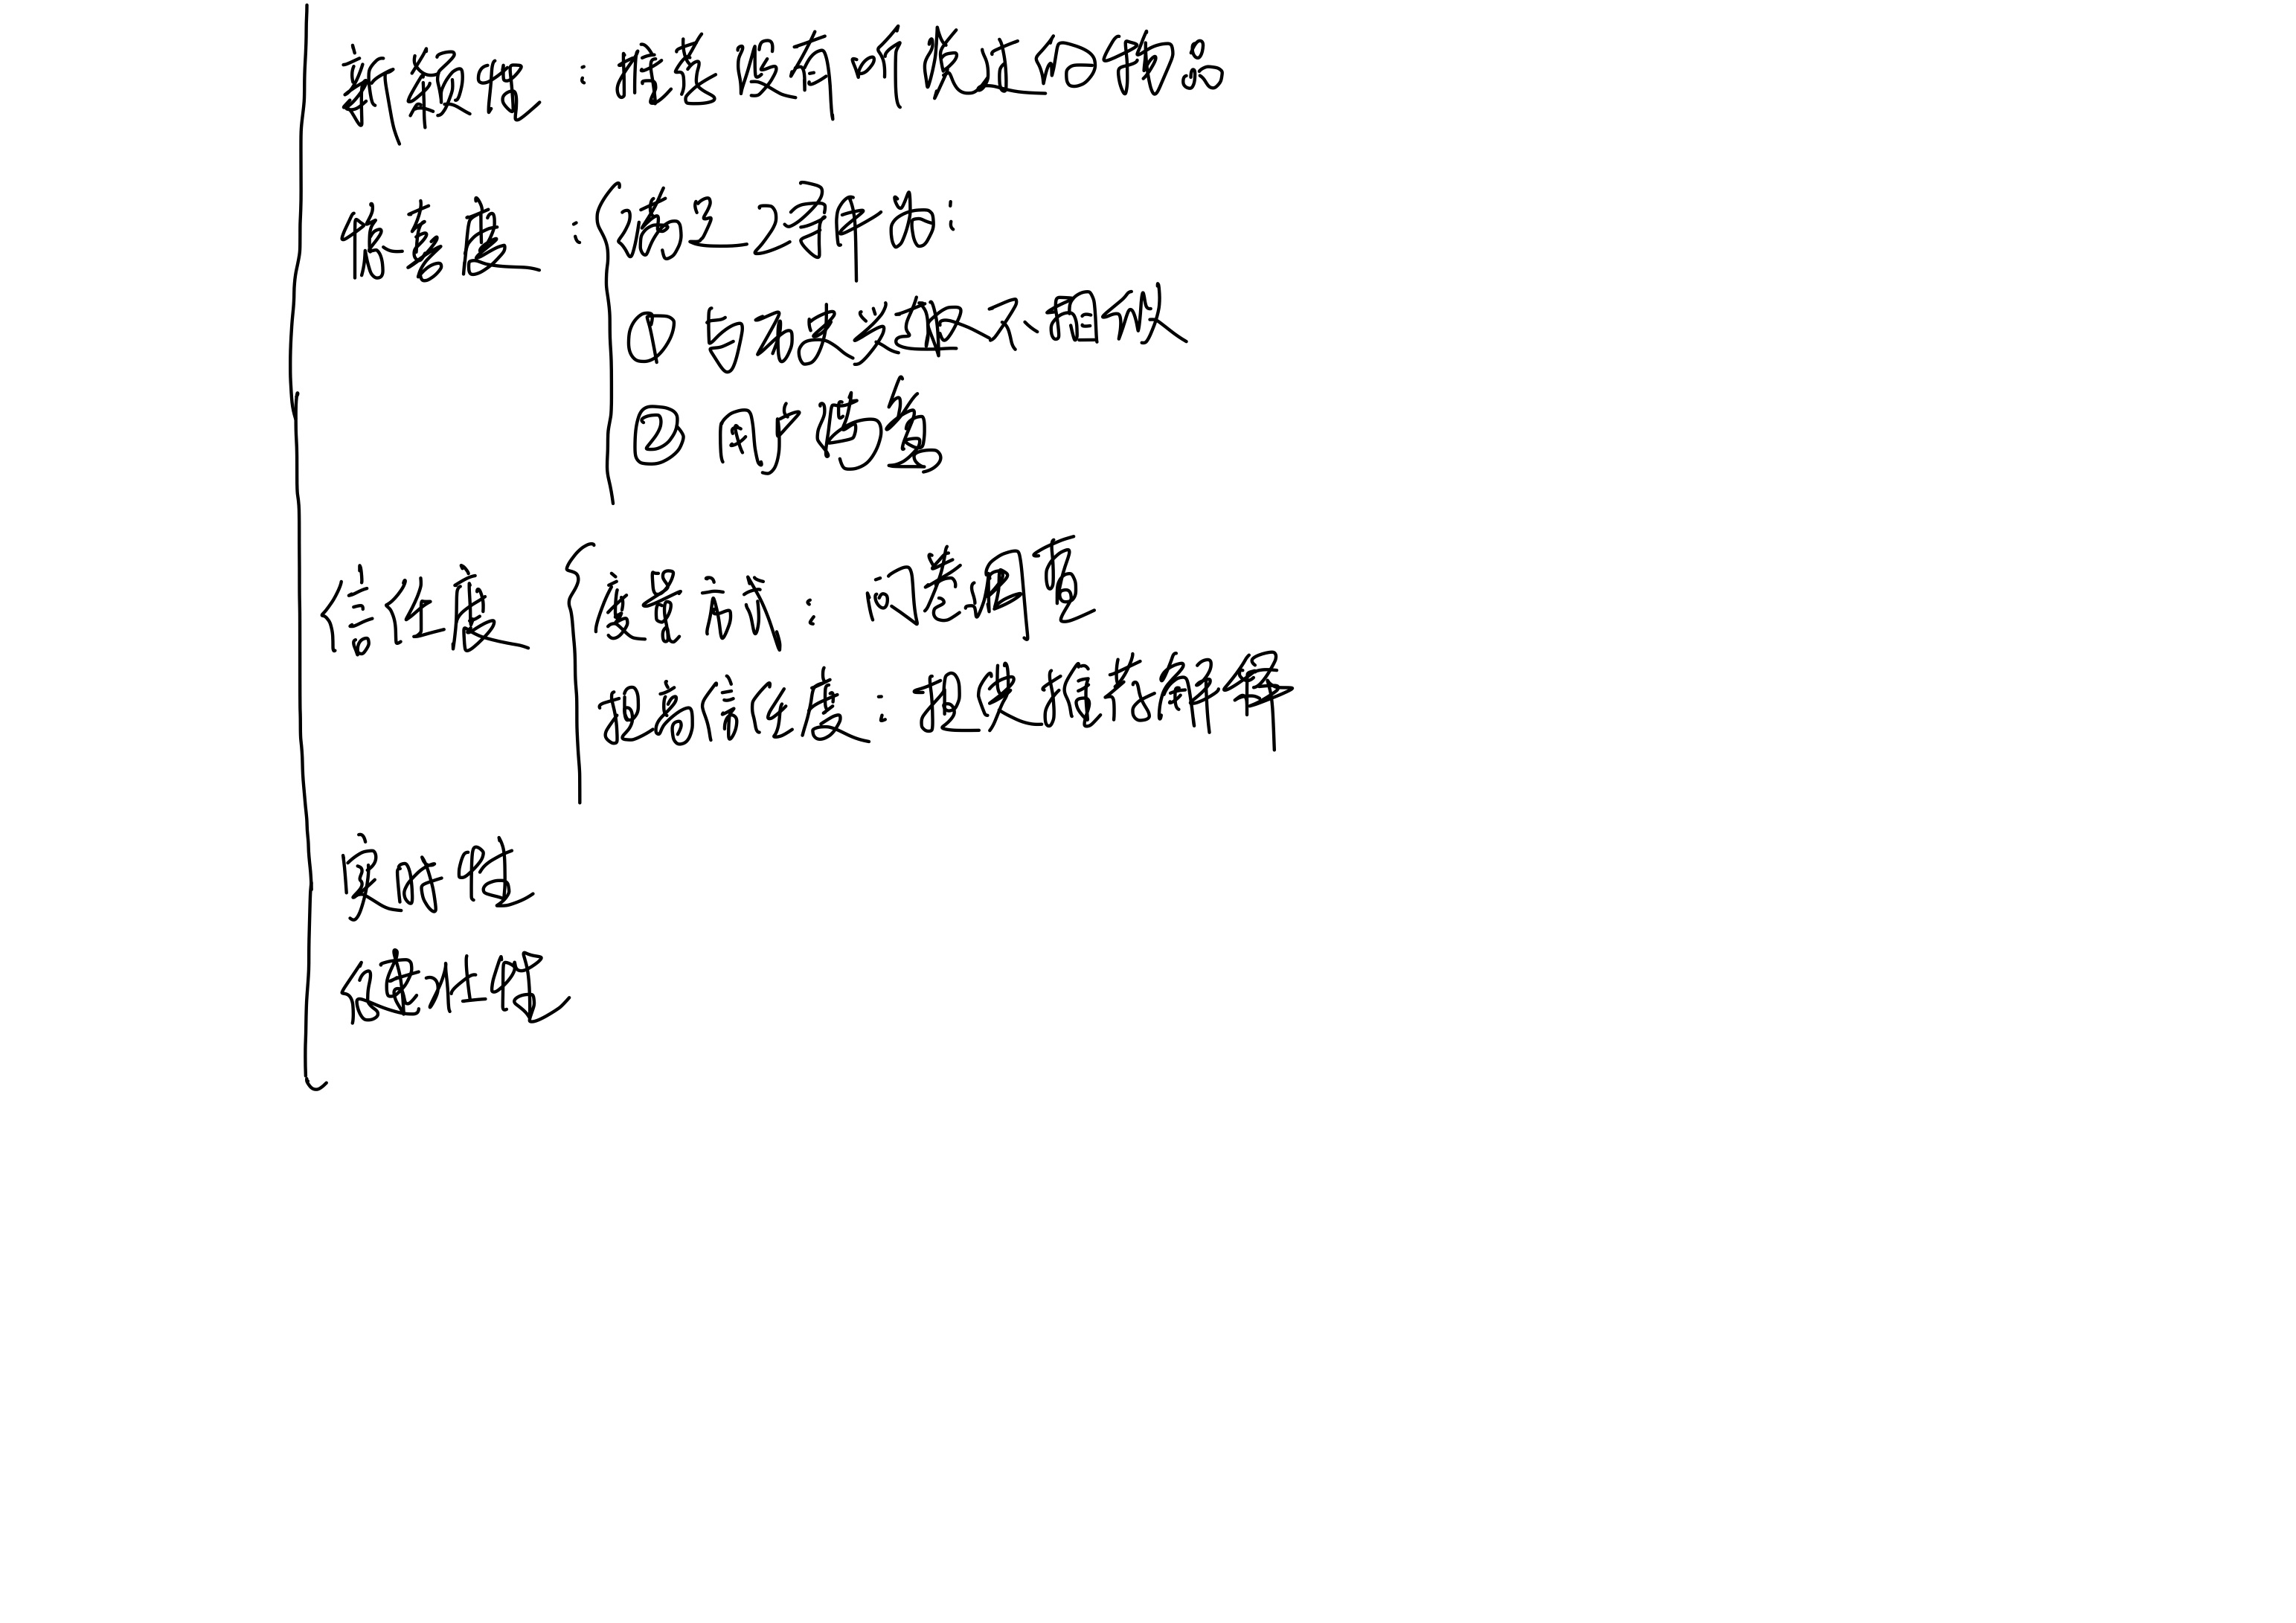 新颖性:檢索结果中所筏去的物品
惊喜度:
满足2条件的:
① 与历史兴趣不同似
② 用户满意
信任度
度量方式:问卷调查
提高信任度:提供推荐解释
实时性
健壮性